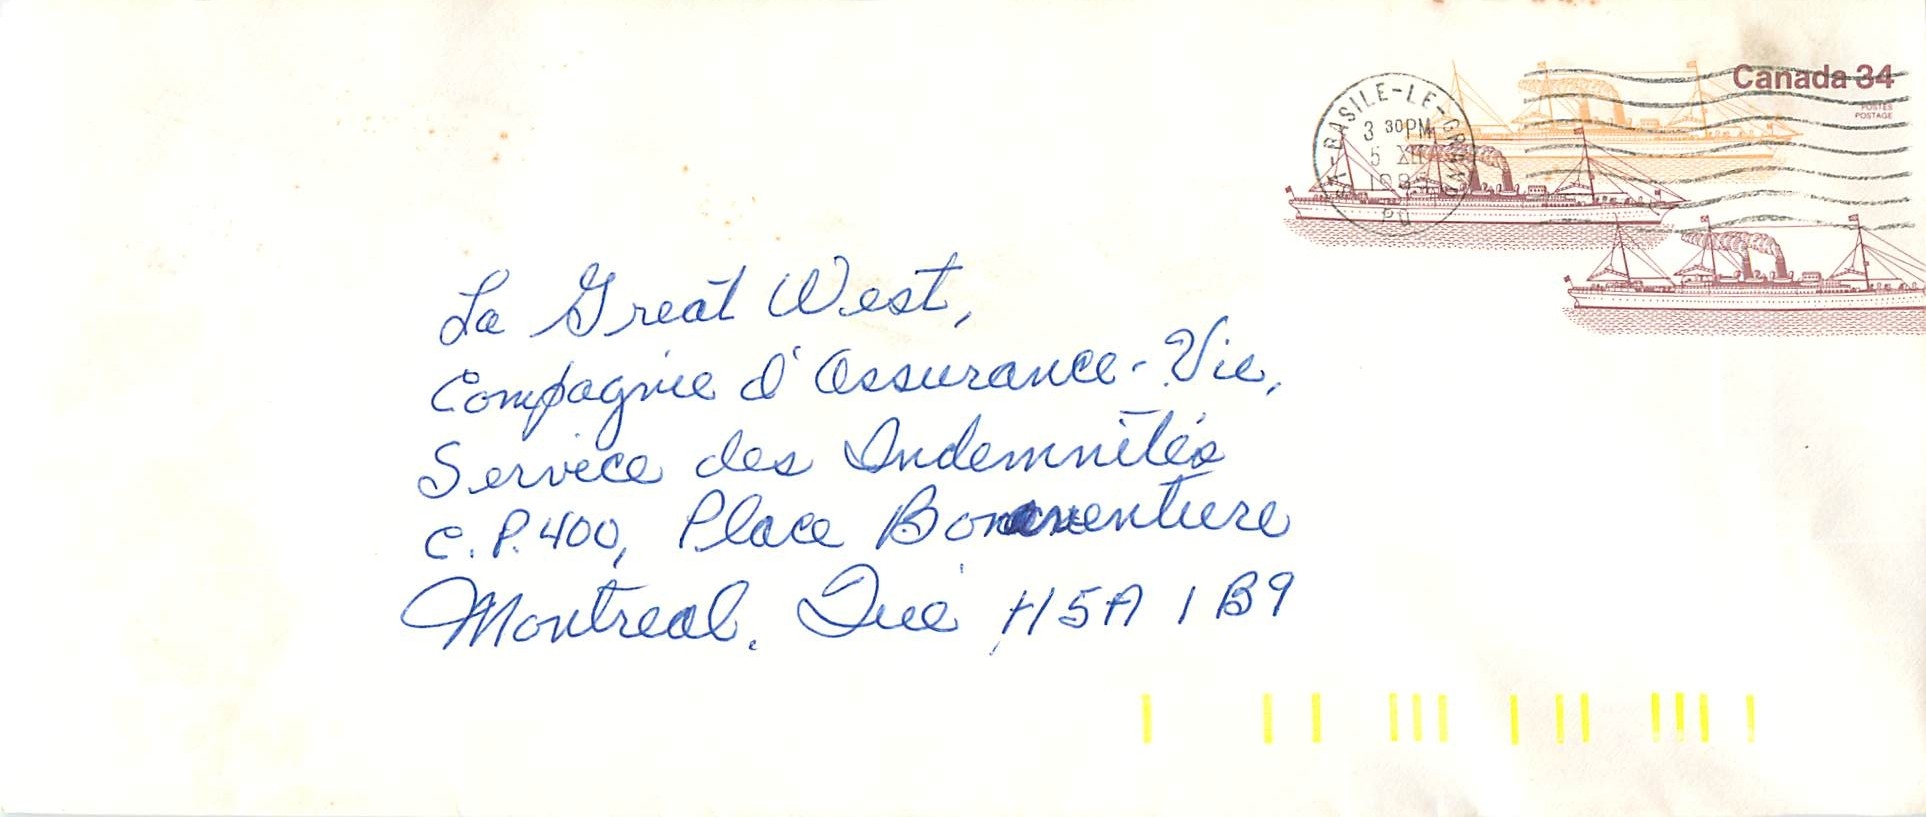 Canada 34
POSTES
POSTAGE
ST-BASILE-LE-GRAND
3 30PM
5 XII
198
PQ
La Great West,
Compagnie d'Assurance-Vie,
Service des Indemnités
C.P. 400, Place Bonaventure
Montreal. Qué H5A 1B9